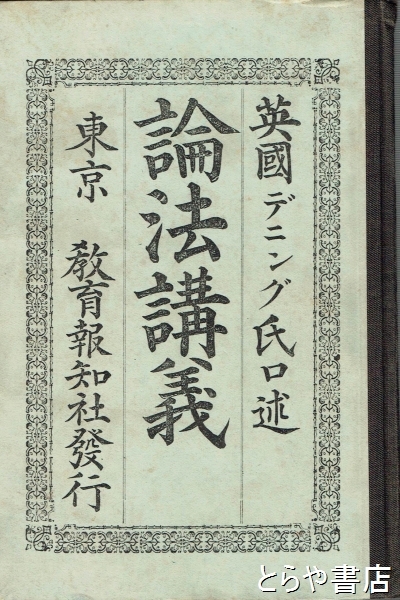 英國デニング氏口述
論法講義
東京 教育報知社發行
とらや書店